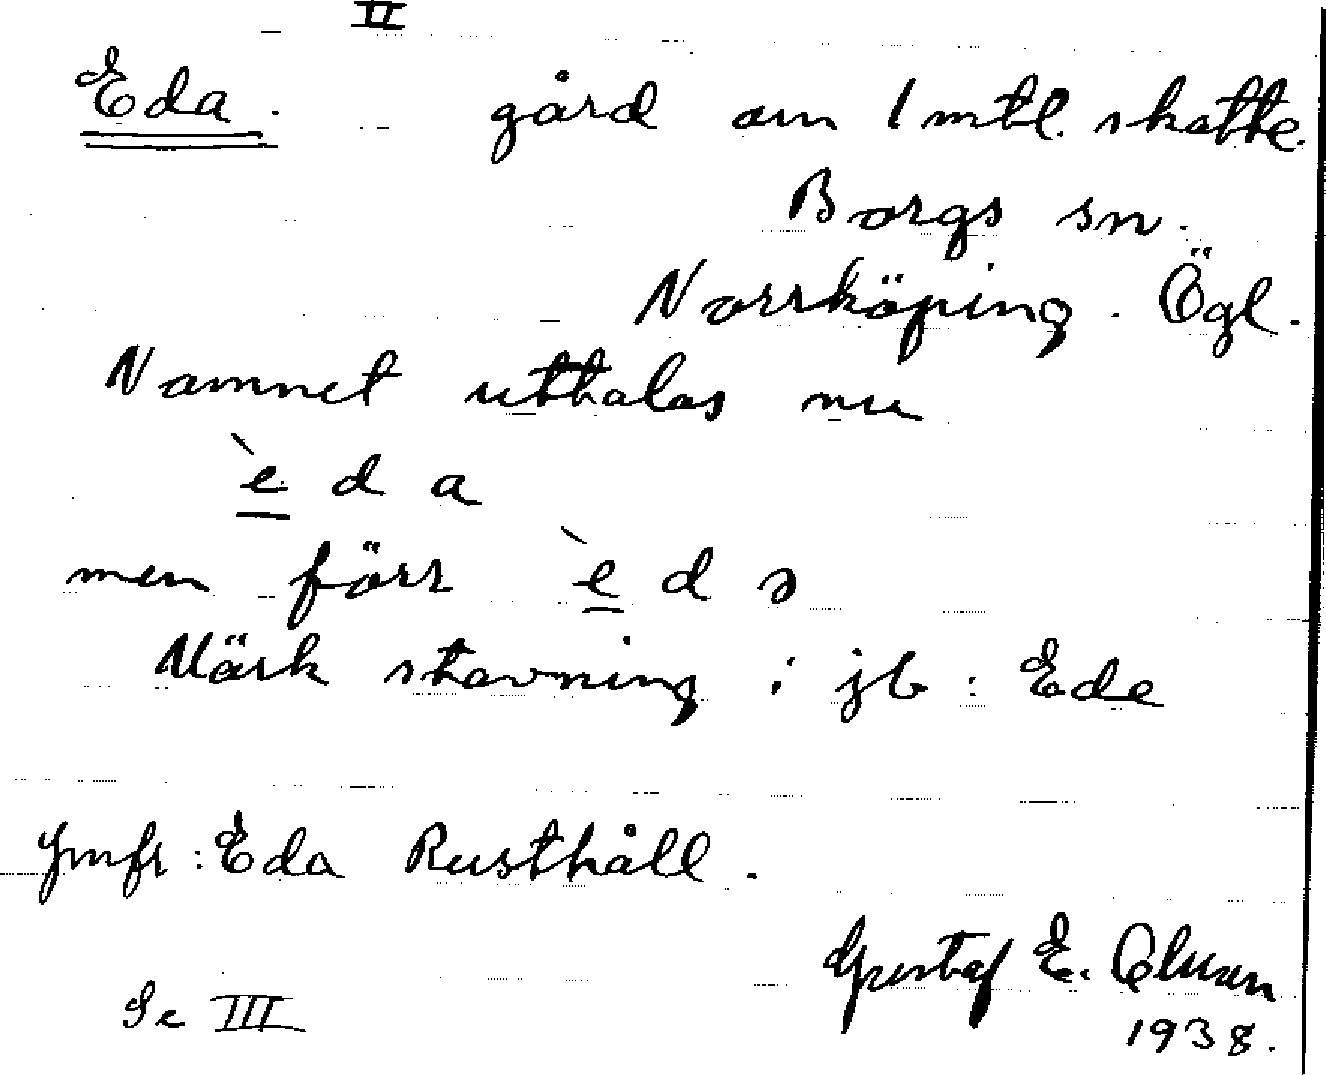 II
Eda. gård om 1 mtl. skatte.
Borgs sn.
Norrköping. Ögl.
Namnet uttalas nu
̀e d a
men förr ̀e d ə
Märk stavning i jb: Ede
Jmfr: Eda Rusthåll.
Gustaf E. Olsson
Se III
1938.